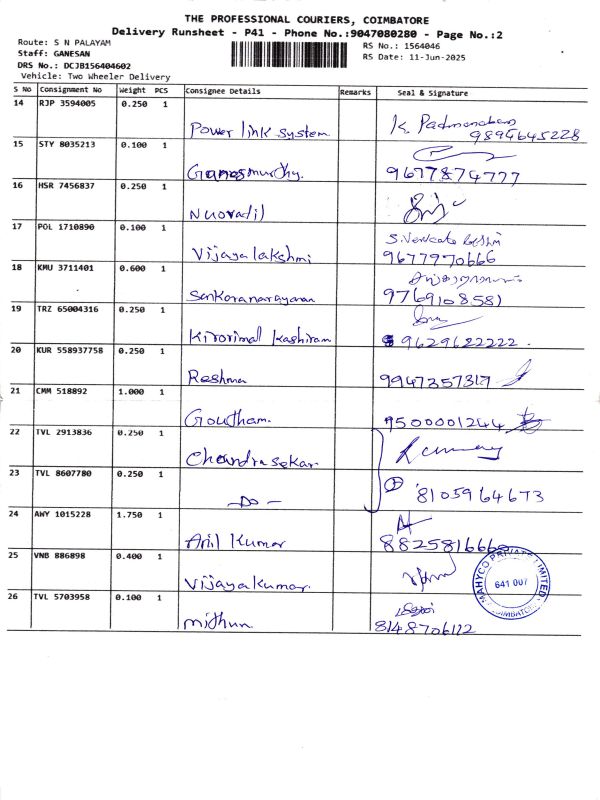 THE PROFESSIONAL COURIERS, COIMBATORE
Delivery Runsheet - P41 - Phone No.:9047080280 - Page No.:2
Route: S N PALAYAM
RS No.: 1564046
Staff: GANESAN
RS Date: 11-Jun-2025
DRS No.: DCJB156404602
Vehicle: Two Wheeler Delivery
S No Consignment No Weight PCS Consignee Details Remarks Seal & Signature
14 RJP 3594005 0.250 1
Power link system K. Padmanaban
9894645228
15 STY 8035213 0.100 1
96778 74777
16 HSR 7456837 0.250 1
17 POL 1710890 0.100 1
S. Venkata
Vijayalakshmi 9677970666
18 KMU 3711401 0.600 1
Sankaranarayanan 9769108581
19 TRZ 65004316 0.250 1
Kirorimal Kashiram 9629622222.
20 KUR 558937758 0.250 1
Reshma 9947357317
21 CMM 518892 1.000 1
Goutham. 9500001244
22 TVL 2913836 0.250 1
Chandrasekar.
23 TVL 8607780 0.250 1
- Do - 8105964673
24 AWY 1015228 1.750 1
Anil Kumar 8825816660
25 VNB 886898 0.400 1
Vijayakumar.
MAHYCO PRIVATE LIMITED
641 007
COIMBATORE
26 TVL 5703958 0.100 1
Mithun 8148706112